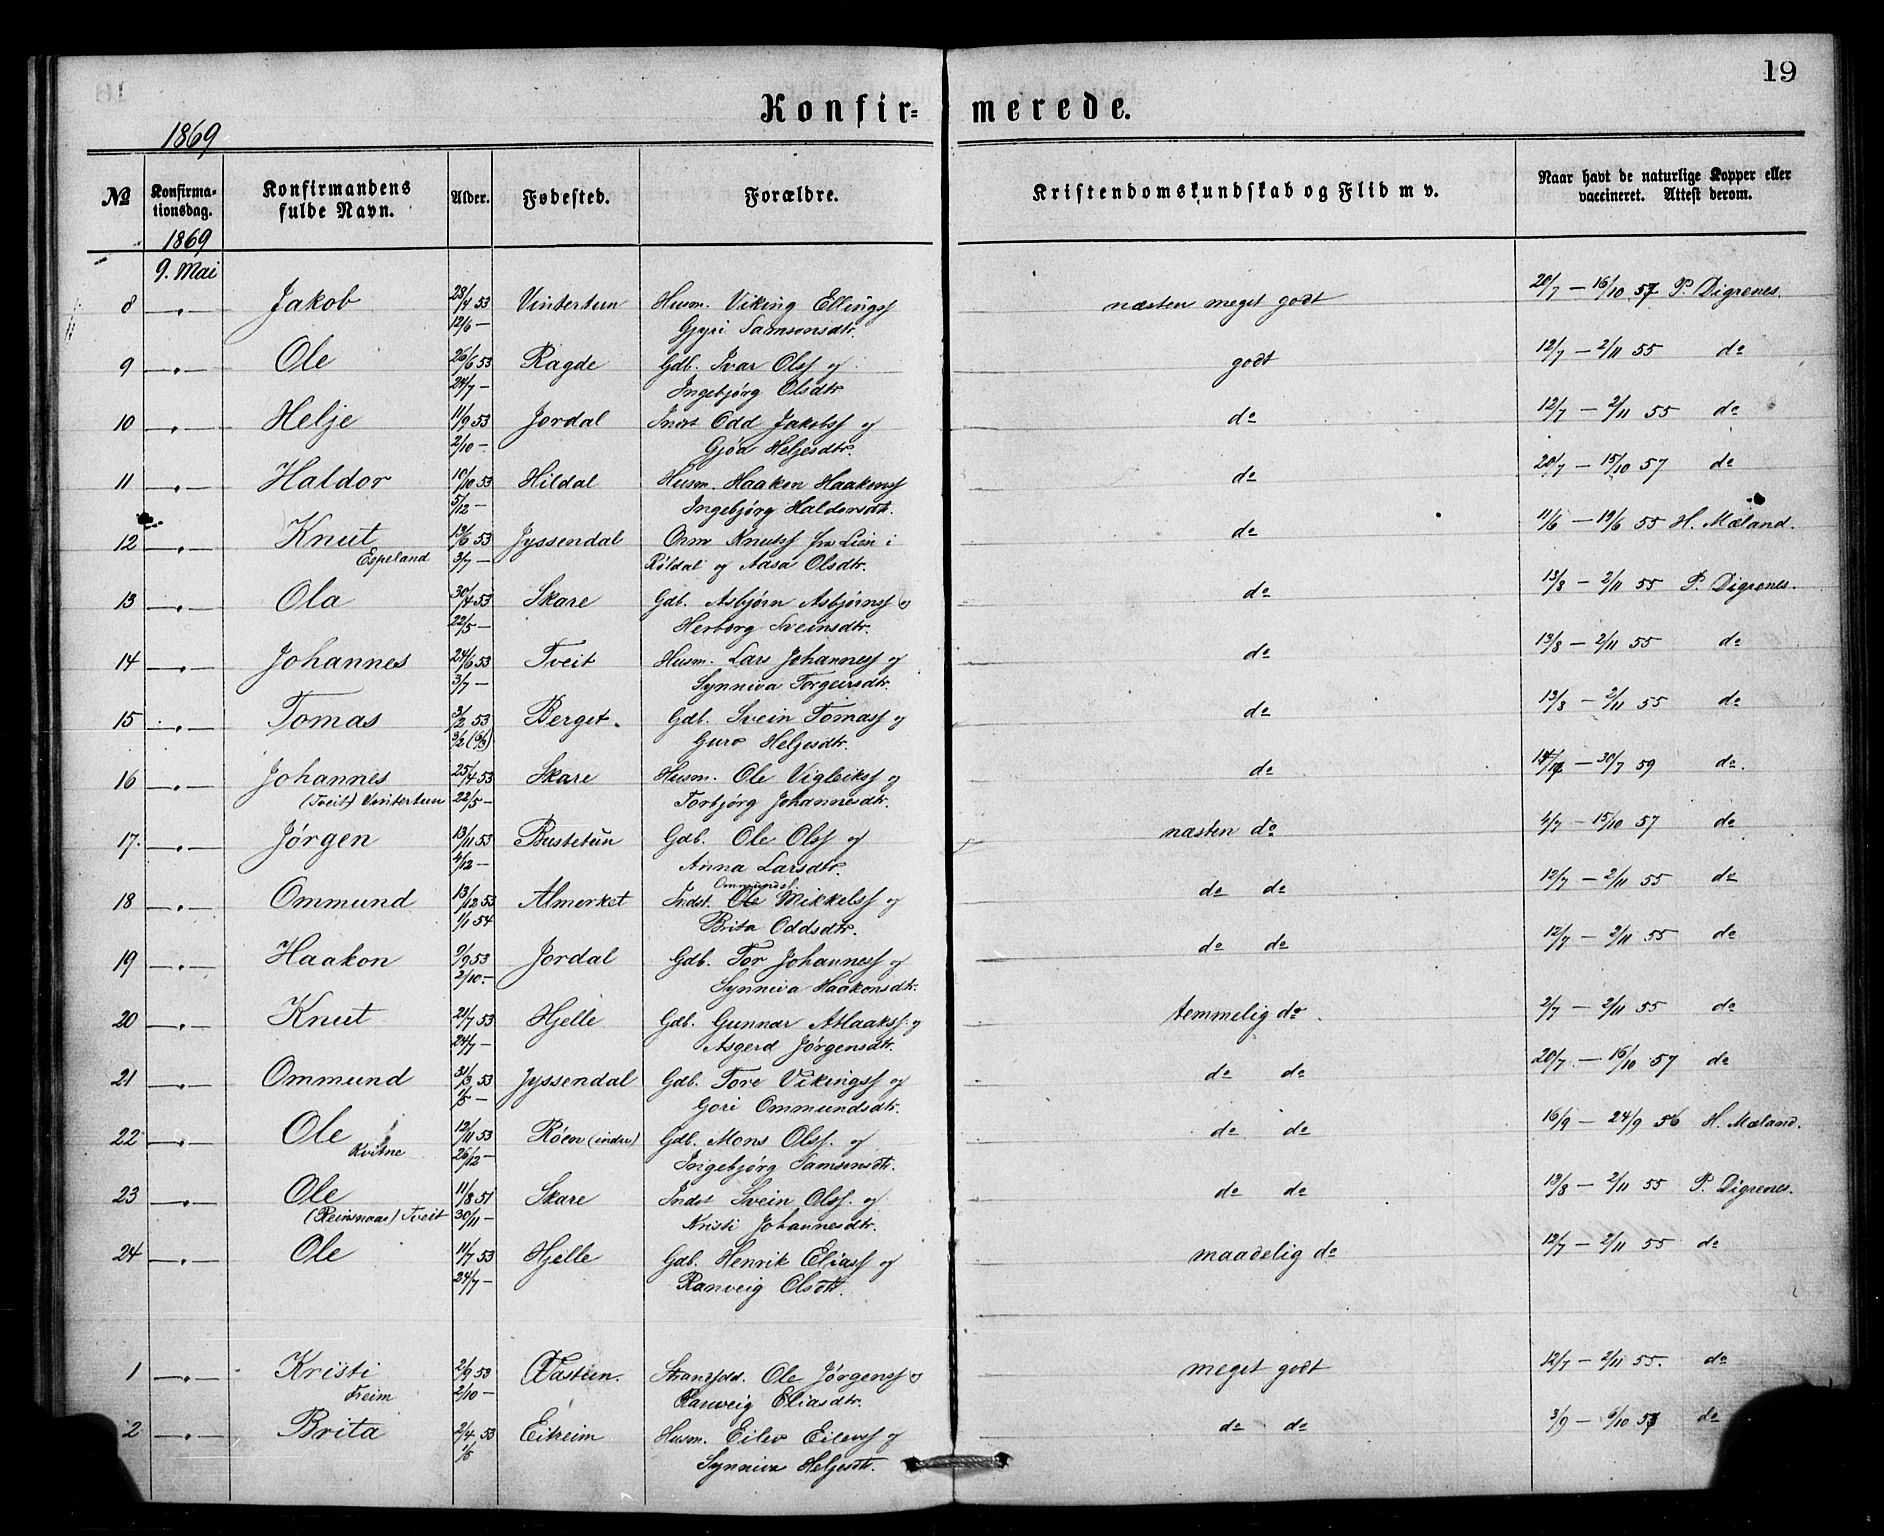 19
Konfir= merede.
1869
No Konfirma-tionsdag. Konfirmandens fulde Navn. Alder. Fødested. Forældre. Kristendomskundskab og Flid m v. Naar havt de naturlige Kopper eller vaccineret. Attest derom.
1869
9. Mai
8 —"— Jakob 28/4 53 Vintertun Husm. Viking Ellingsf næsten meget godt 20/7 — 16/10 57 P. Digrenes.
12/6 — Gjyri Samsonsdtr.
9 —"— Ole 26/6 53 Ragde Gdb. Ivar Olsf og godt 12/7 — 2/11 55 do
24/7 — Ingebjørg Olsdtr.
10 —"— Helje 11/9 53 Jordal Inds't Odd Jakobsf og do 12/7 — 2/11 55 do
2/10 — Gjøa Heljesdtr.
11 —"— Haldor 10/10 53 Hildal Husm. Haakon Haakonsf do 20/7 — 15/10 57 do
5/12 — Ingebjørg Haldorsdtr.
12 —"— Knut 13/6 53 Jyssendal Orm Knutsf fra Lien i do 11/6 — 19/6 55 H. Mæland.
Espeland 3/7 — Røldal og Aasa Olsdtr.
13 —"— Ola 30/4 53 Skare Gdb. Asbjørn Asbjørnsf og do 13/8 — 2/11 55 P. Digrenes.
22/5 — Herborg Sveinsdtr.
14 —"— Johannes 24/6 53 Tveit Husm. Lars Johannesf og do 13/8 — 2/11 55 do
3/7 — Synniva Torgeirsdtr.
15 —"— Tomas 3/2 53 Berget. Gdb. Svein Tomasf og do 13/8 — 2/11 55 do
3/2 (6/3) Guro Heljesdtr.
16 —"— Johannes 25/4 53 Skare Husm. Ole Vigleiksf og do — 30/7 59 do.
(Tveit) Vintertun 22/5 — Torbjørg Johannesdtr.
17. —"— Jørgen 13/11 53 Bustetun Gdb. Ole Olsf og næsten do 4/7 — 15/10 57 do
4/12 — Anna Larsdtr.
Ommundsf.
18 —"— Ommund 13/12 53 Almerket Indst. Ole Mikkelsf og do do 12/7 — 2/11 55 do
1/1 54 Brita Oddsdtr.
19 —"— Haakon 9/9 53 Jordal Gdb. Tor Johannesf og do do 12/7 — 2/11 55 do
2/10 — Synniva Haakonsdtr.
20 —"— Knut 21/7 53 Hjelle Gdb. Gunnar Aslaaksf. og temmelig do 2/7 — 2/11 55 do
24/7 — Asgerd Jørgensdtr.
21 —"— Ommund 31/3 53 Jyssendal Gdb. Tore Vikingsf og do do 20/7 — 16/10 57 do
1/5 — Gori Ommundsdtr.
22 —"— Ole 12/11 53 Røen (indre) Gdb. Mons Olsf. og do do 16/9 — 24/9 56 H. Mæland.
Kvitne 26/12 — Ingebjørg Samsonsdtr.
23 —"— Ole 11/8 51 Skare Indst Svein Olsf. og do do 13/8 — 2/11 55 P. Digrenes.
(Reinsnaas) Tveit 30/11 — Kristi Johannesdtr.
24 —"— Ole 11/7 53 Hjelle Gdb. Henrik Eliasf og maadelig do 12/7 — 2/11 55 do
24/7 — Ranveig Olsdtr.
1 —"— Kristi 2/9 53 Vastun. Strandsdd. Ole Jørgensf og meget godt 12/7 — 2/11 55. do
Freim 2/10 — Ranveig Eliasdtr.
2 —"— Brita 2/4 53 Eitreim Husm. Eilev Eilevsf og do do 3/9 — 6/10 57 do
1/5 Synniva Heljesdtr.